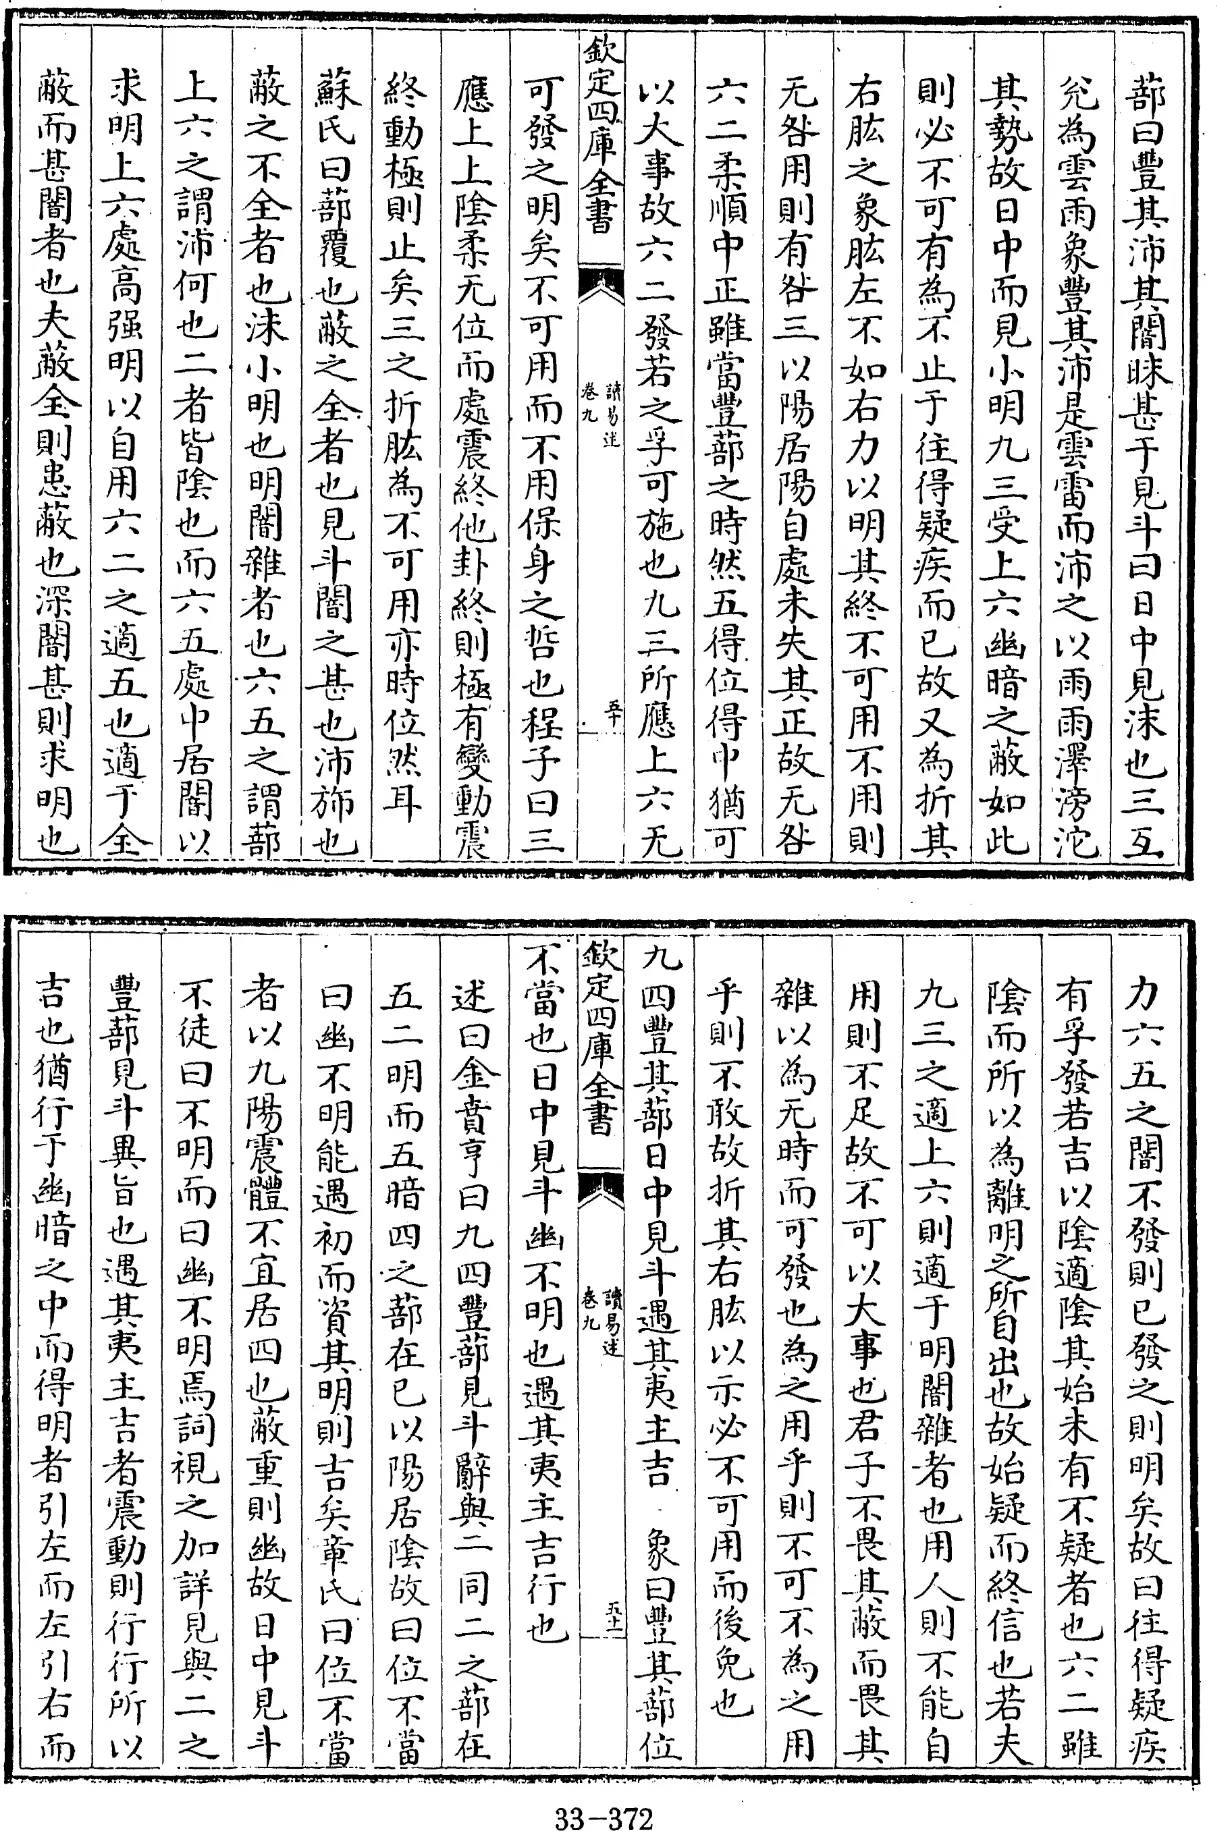 蔀曰豐其沛其闇昧甚于見斗曰日中見沬也三互
兊為雲雨象豐其沛是雲雷而沛之以雨雨澤滂沱
其勢故日中而見小明九三受上六幽暗之蔽如此
則必不可有為不止于往得疑疾而已故又為折其
右肱之象肱左不如右力以明其終不可用不用則
无咎用則有咎三以陽居陽自處未失其正故无咎
六二柔順中正雖當豐蔀之時然五得位得中猶可
以大事故六二發若之孚可施也九三所應上六无
欽定四庫全書
讀易述
卷九
五十
可發之明矣不可用而不用保身之哲也程子曰三
應上上陰柔无位而處震終他卦終則極有變動震
終動極則止矣三之折肱為不可用亦時位然耳
蘇氏曰蔀覆也蔽之全者也見斗闇之甚也沛斾也
蔽之不全者也沬小明也明闇雜者也六五之謂蔀
上六之謂沛何也二者皆陰也而六五處中居闇以
求明上六處高强明以自用六二之適五也適于全
蔽而甚闇者也夫蔽全則患蔽也深闇甚則求明也
力六五之闇不發則已發之則明矣故曰往得疑疾
有孚發若吉以陰適陰其始未有不疑者也六二雖
陰而所以為離明之所自出也故始疑而終信也若夫
九三之適上六則適于明闇雜者也用人則不能自
用則不足故不可以大事也君子不畏其蔽而畏其
雜以為无時而可發也為之用乎則不可不為之用
乎則不敢故折其右肱以示必不可用而後免也
九四豐其蔀日中見斗遇其夷主吉 象曰豐其蔀位
欽定四庫全書
讀易述
卷九
五十一
不當也日中見斗幽不明也遇其夷主吉行也
述曰金賁亨曰九四豐蔀見斗辭與二同二之蔀在
五二明而五暗四之蔀在已以陽居陰故曰位不當
曰幽不明能遇初而資其明則吉矣章氏曰位不當
者以九陽震體不宜居四也蔽重則幽故日中見斗
不徒曰不明而曰幽不明焉詞視之加詳見與二之
豐蔀見斗異旨也遇其夷主吉者震動則行行所以
吉也猶行于幽暗之中而得明者引左而左引右而
33-372